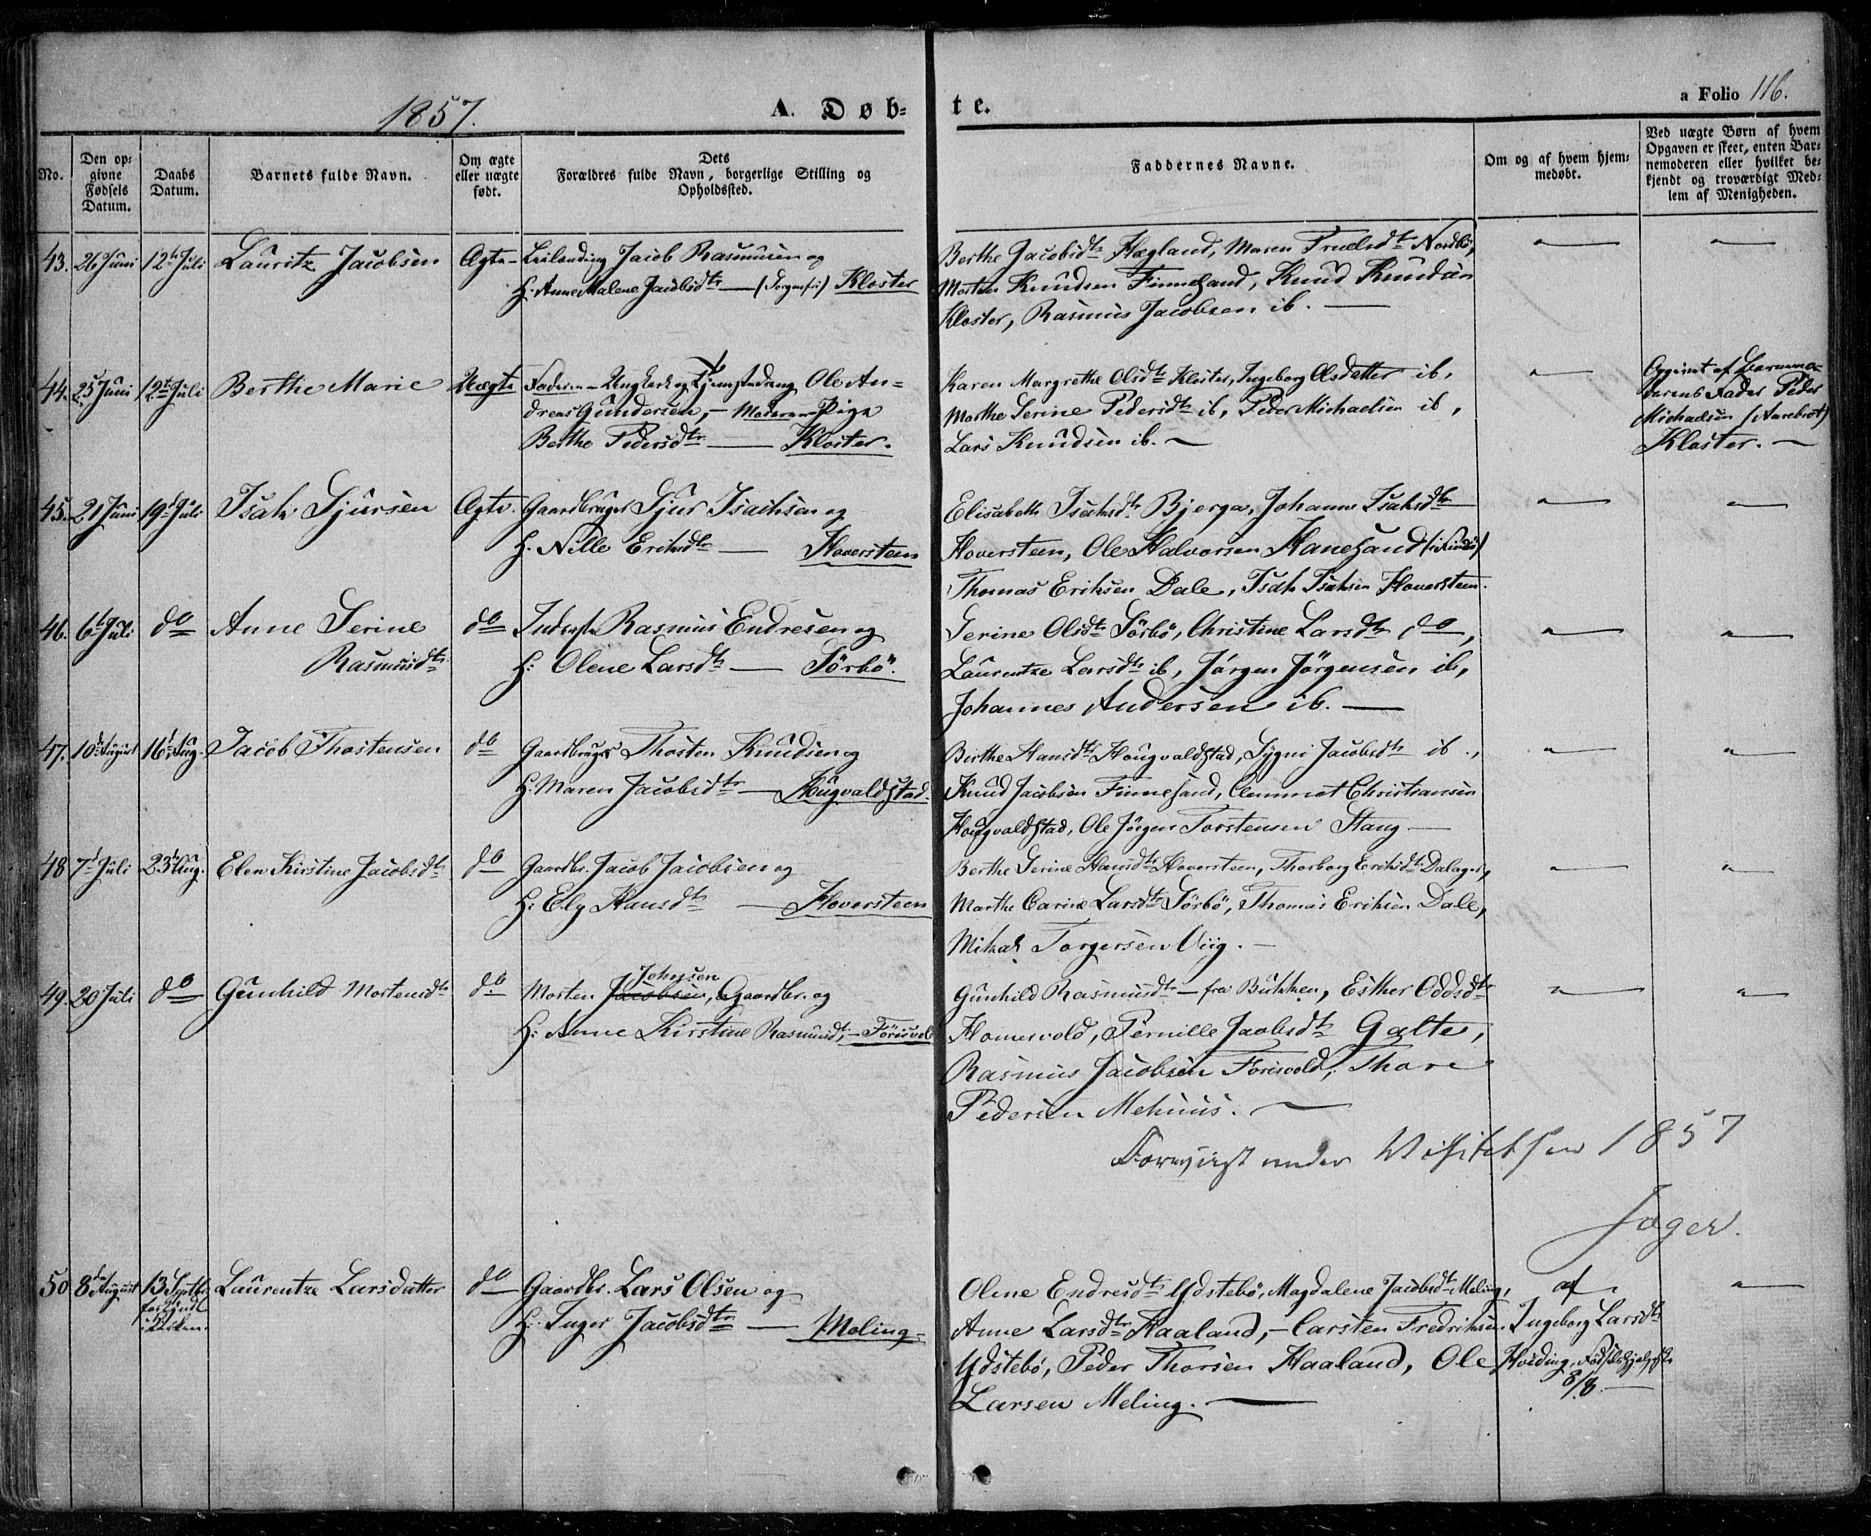 1857.
A. Døb-
te.
a Folio 116.
No.
Den op-
givne
Fødsels
Datum.
Daabs
Datum.
Barnets fulde Navn.
Om ægte
eller uægte
født.
Dets
Forældres fulde Navn, borgerlige Stilling og
Opholdssted.
Faddernes Navne.
Om og af hvem hjem-
medøbt.
Ved uægte Børn af hvem
Opgaven er skeet, enten Bar-
nemoderen eller hvilket be-
kjendt og troværdigt Med-
lem af Menigheden.
43. 26 Juni 12te Juli Lauritz Jacobsen Ægte Leilænding Jacob Rasmusen og
H. Anne Malene Jacobsdtr — (Sorgenfri) Kloster
Berthe Jacobsdtr Hægland, Maren Truelsdtr Nordbö,
Morten Knudsen Finnesand, Knud Knudsen
Kloster, Rasmus Jacobsen ib. —
44. 25 Juni 12te Juli Berthe Marie Uægte Faderen – Ungkarl og Ole An-
dreas Gundersen, – Moderen Pige
Berthe Pedersdtr — Kloster.
Karen Margrethe Olsdtr Kloster, Ingeborg Olsdatter ib,
Marthe Serine Pedersdtr ib, Peder Michaelsen ib,
Lars Knudsen ib. —
Opgivet af Barnemo-
derens Fader Peder
Michaelsen
Kloster. —
45. 21 Juni 19de Juli Isak Sjursen Ægte. Gaardbruger Sjur Isachsen og
H. Nille Eriksdtr — Hoversteen
Elisabeth Isaksdtr Bjerga, Johanne Isaksdtr
Hoversteen, Ole Halvorsen Hanesand (i Findö)
Thomas Eriksen Dale, Isak Isaksen Hoversteen.
46. 6te Juli do Anne Serine do Inderste Rasmus Endresen og
Rasmusdtr H: Olene Larsdtr — Sörbö.
Serine Olsdtr Sörbö, Christine Larsdtr do,
Laurentze Larsdtr ib, Jörgen Jörgensen ib,
Johannes Andersen ib. —
47. 10de August 16de Aug. Jacob Thostensen do Gaardbruger Thosten Knudsen og
H: Maren Jacobsdtr — Hougvaldstad.
Birthe Hansdtr Hougvaldstad, Sygni Jacobsdtr ib.,
Knud Jacobsen Finnesand, Clemmet Christiansen
Hougvaldstad, Ole Jörgen Torstensen Stang —
48 7de Juli 23de Aug. Elen Kirstine Jacobsdtr do Gaardbr. Jacob Jacobsen og
H: Ely Hansdtr — Hoversteen
Berthe Serine Hansdtr Hoversteen, Thorborg Eriksdtr Dalager,
Marthe Carine Larsdtr Sörbö, Thomas Eriksen Dale,
Mikal Torgersen Viig. —
49. 20 Juli do Gunhild Mortensdtr do. Morten Jacobsen, Johnsen Gaardbr. og
H: Anne Kirstine Rasmusdtr, – Förisvold
Gunhild Rasmusdtr — fra Bukken, Esther Oddsdtr
Homersvold, Pernille Jacobsdtr Galte,
Rasmus Jacobsen Forisvold, Thore
Pedersen Mehuus. —
Foreviist under Visitatsen 1857
Jager.
50 8de August 13 Septbr Laurentze Larsdatter do Gaardbr. Lars Olsen og
i Kirken.
H. Inger Jacobsdtr — Meling.
Olene Endresdtr Ydstebö, Magdalene Jacobsdtr Meling,
Anne Larsdtr Haaland, – Carsten Fredriksen
Ydstebö, Peder Thorsen Haaland, Ole
Larsen Meling. —
af
Ingeborg Larsdtr
Hviding, Födselshjelperske
8/8. —